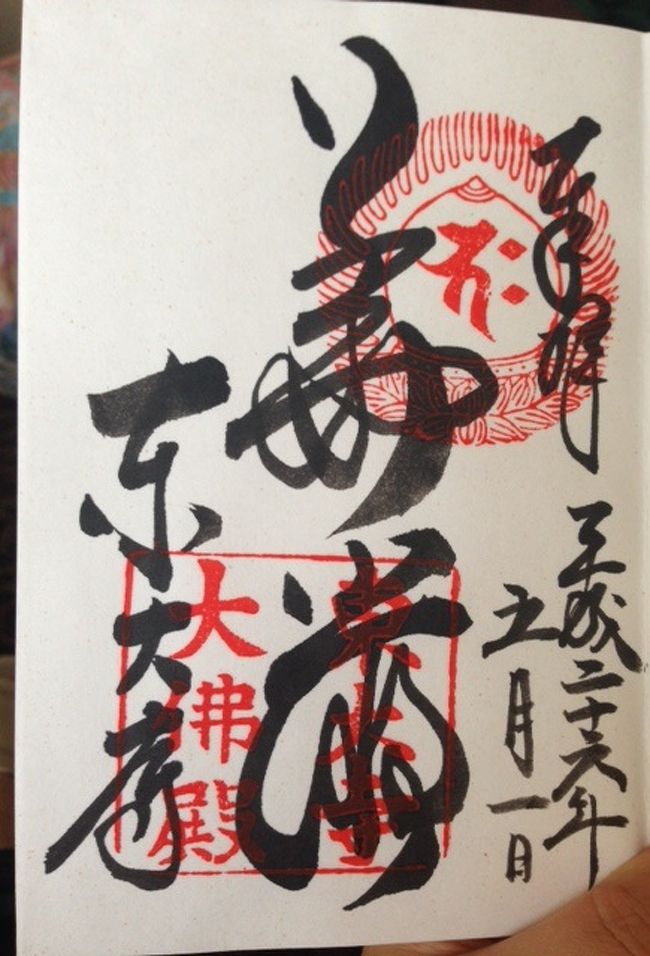 奉拝
平成二十六年
五月一日
華厳
東大寺
東大寺
大佛殿